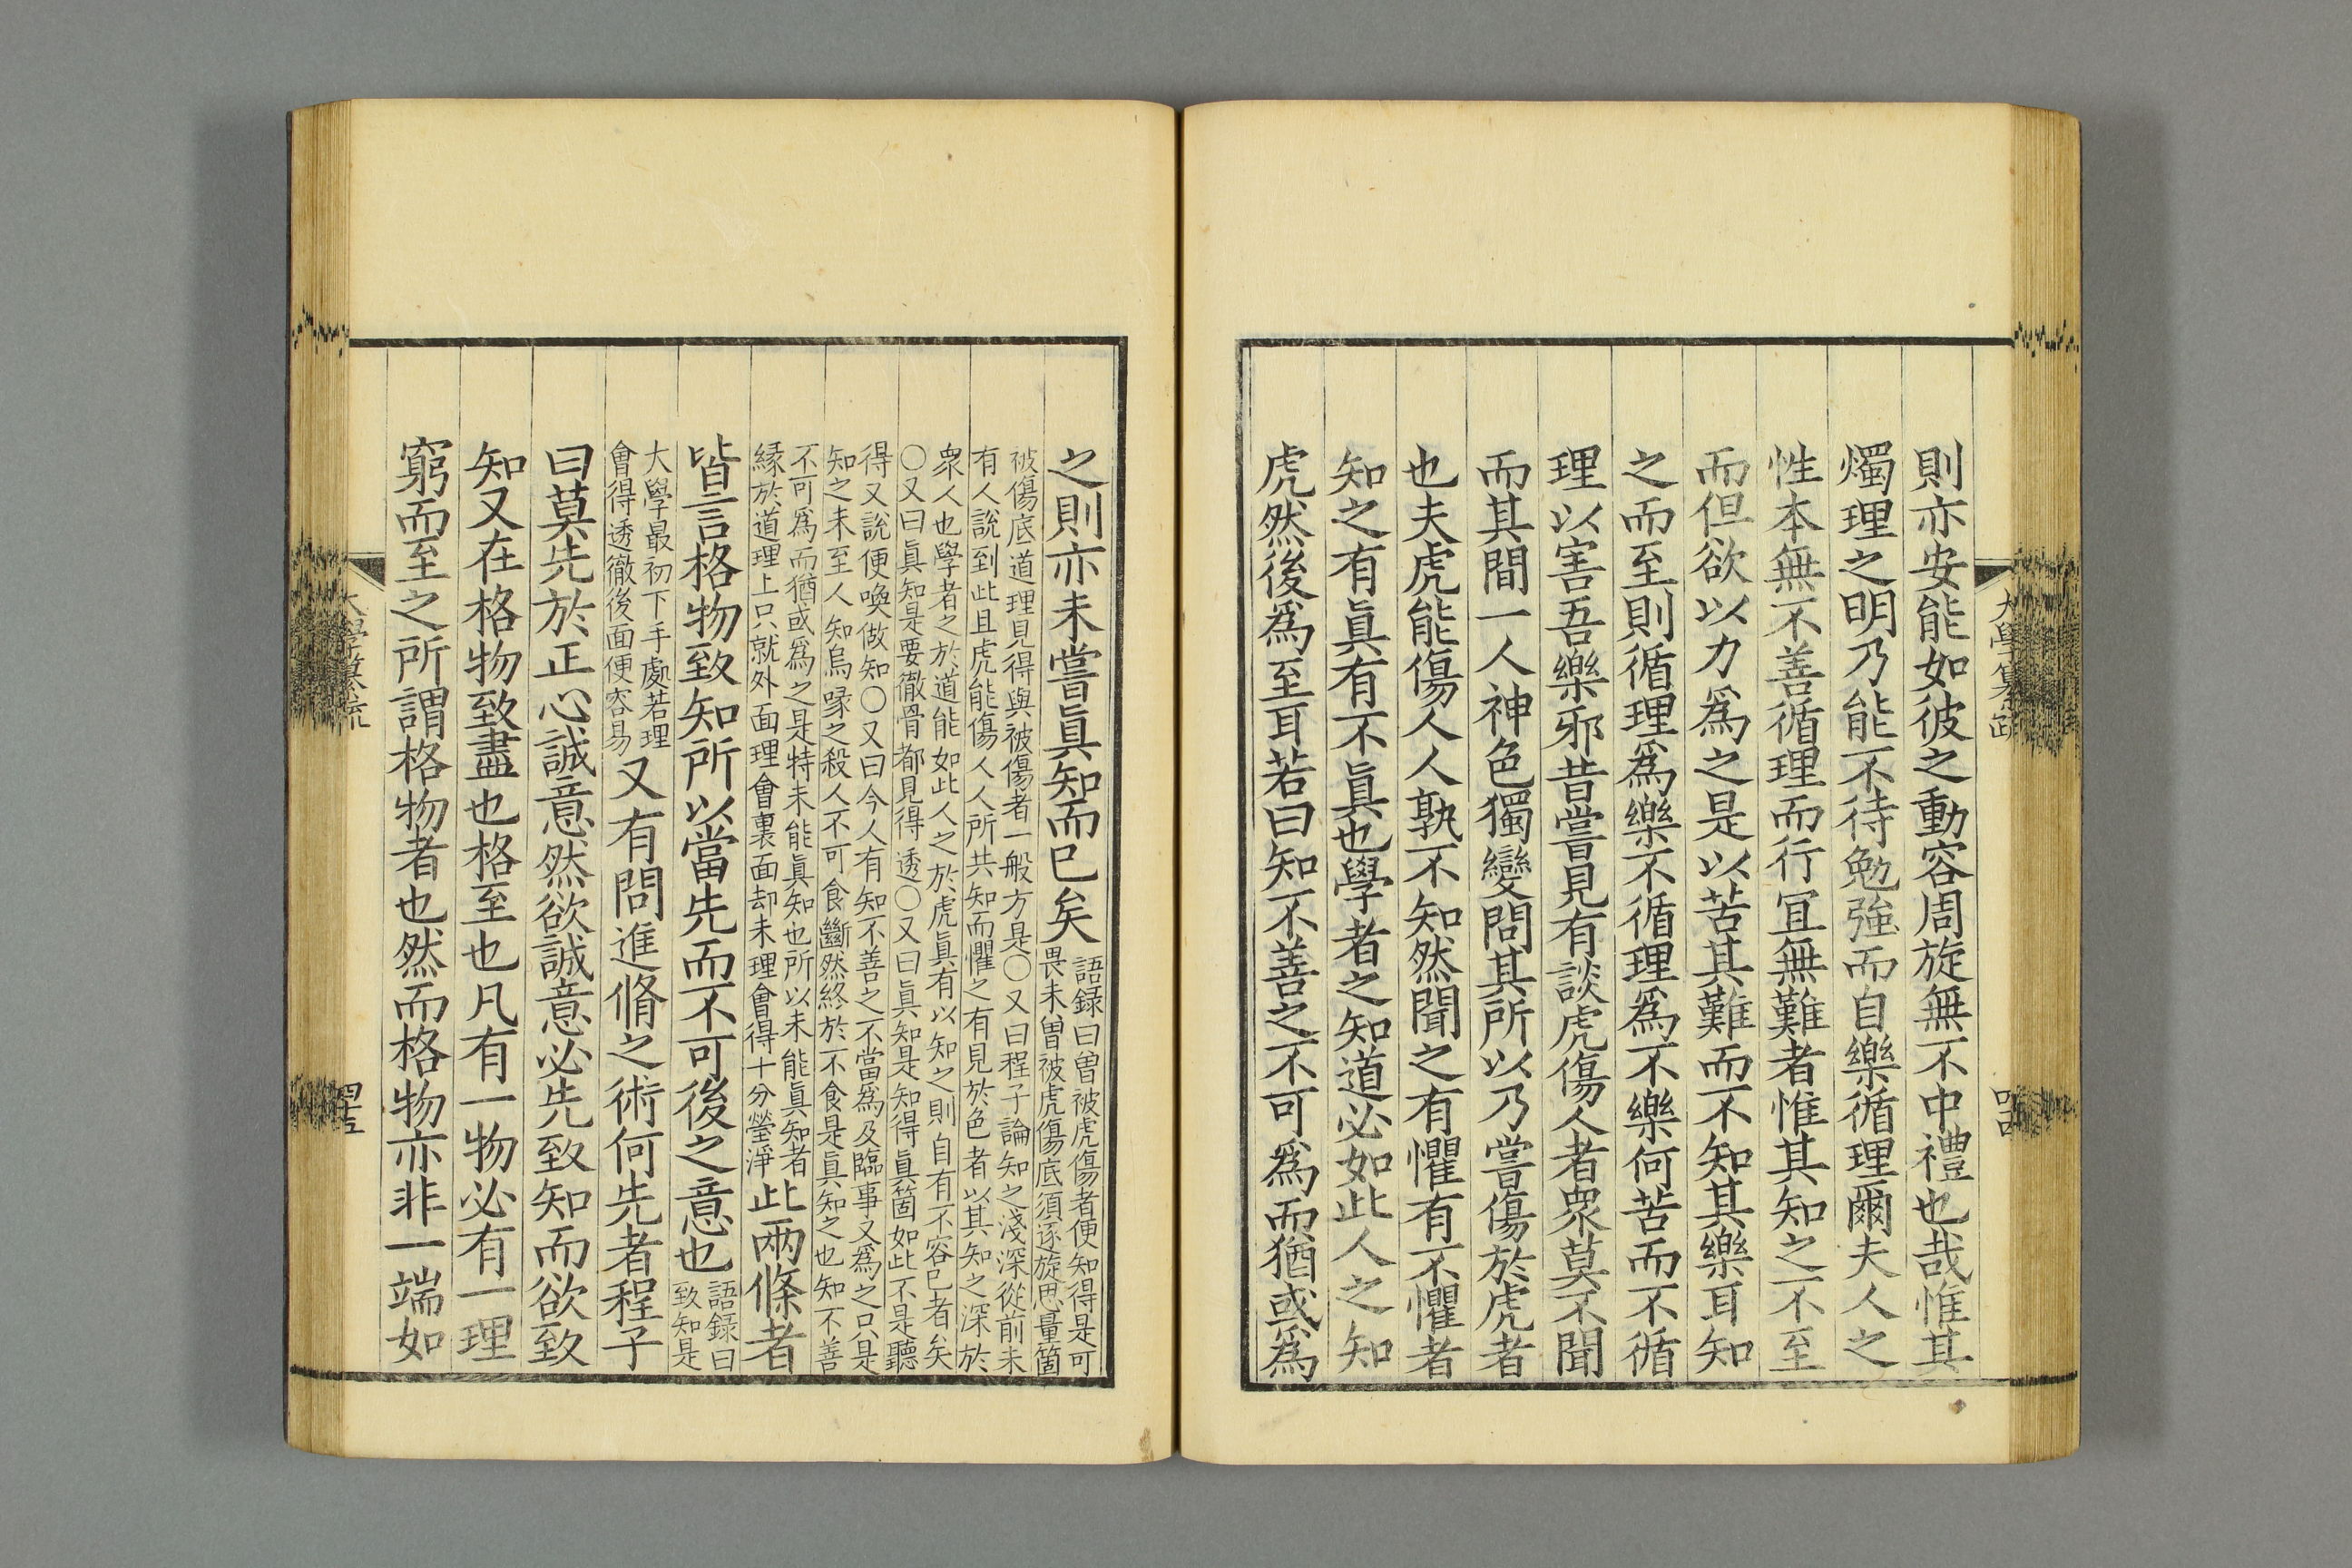 則亦安能如彼之動容周旋無不中禮也哉惟其
燭理之明乃能不待勉強而自樂循理爾夫人之
性本無不善循理而行冝無難者惟其知之不至
而但欲以力爲之是以苦其難而不知其樂耳知
之而至則循理爲樂不循理爲不樂何苦而不循
理以害吾樂邪昔嘗見有談虎傷人者衆莫不聞
而其間一人神色獨變問其所以乃嘗傷於虎者
也夫虎能傷人人孰不知然聞之有懼有不懼者
知之有眞有不眞也學者之知道必如此人之知
虎然後爲至耳若曰知不善之不可爲而猶或爲
之則亦未嘗眞知而已矣
語録曰曽被虎傷者便知得是可
畏未曽被虎傷底須逐旋思量箇
被傷底道理見得與被傷者一般方是○又曰程子論知之淺深從前未
有人說到此且虎能傷人人所共知而懼之有見於色者以其知之深於
衆人也學者之於道能如此人之於虎眞有以知之則自有不容已者矣
○又曰眞知是要徹骨都見得透○又曰眞知是知得眞箇如此不是聽
得又說便喚做知○又曰今人有知不善之不當爲及臨事又爲之只是
知之未至人知烏喙之殺人不可食斷然終於不食是眞知之也知不善
不可爲而猶或爲之是特未能眞知也所以未能眞知者
緣於道理上只就外面理會裏面却未理會得十分瑩淨
此兩條者
皆言格物致知所以當先而不可後之意也
語録曰
致知是
大學最初下手處若理
會得透徹後面便容易
又有問進脩之術何先者程子
曰莫先於正心誠意然欲誠意必先致知而欲致
知又在格物致盡也格至也凡有一物必有一理
窮而至之所謂格物者也然而格物亦非一端如